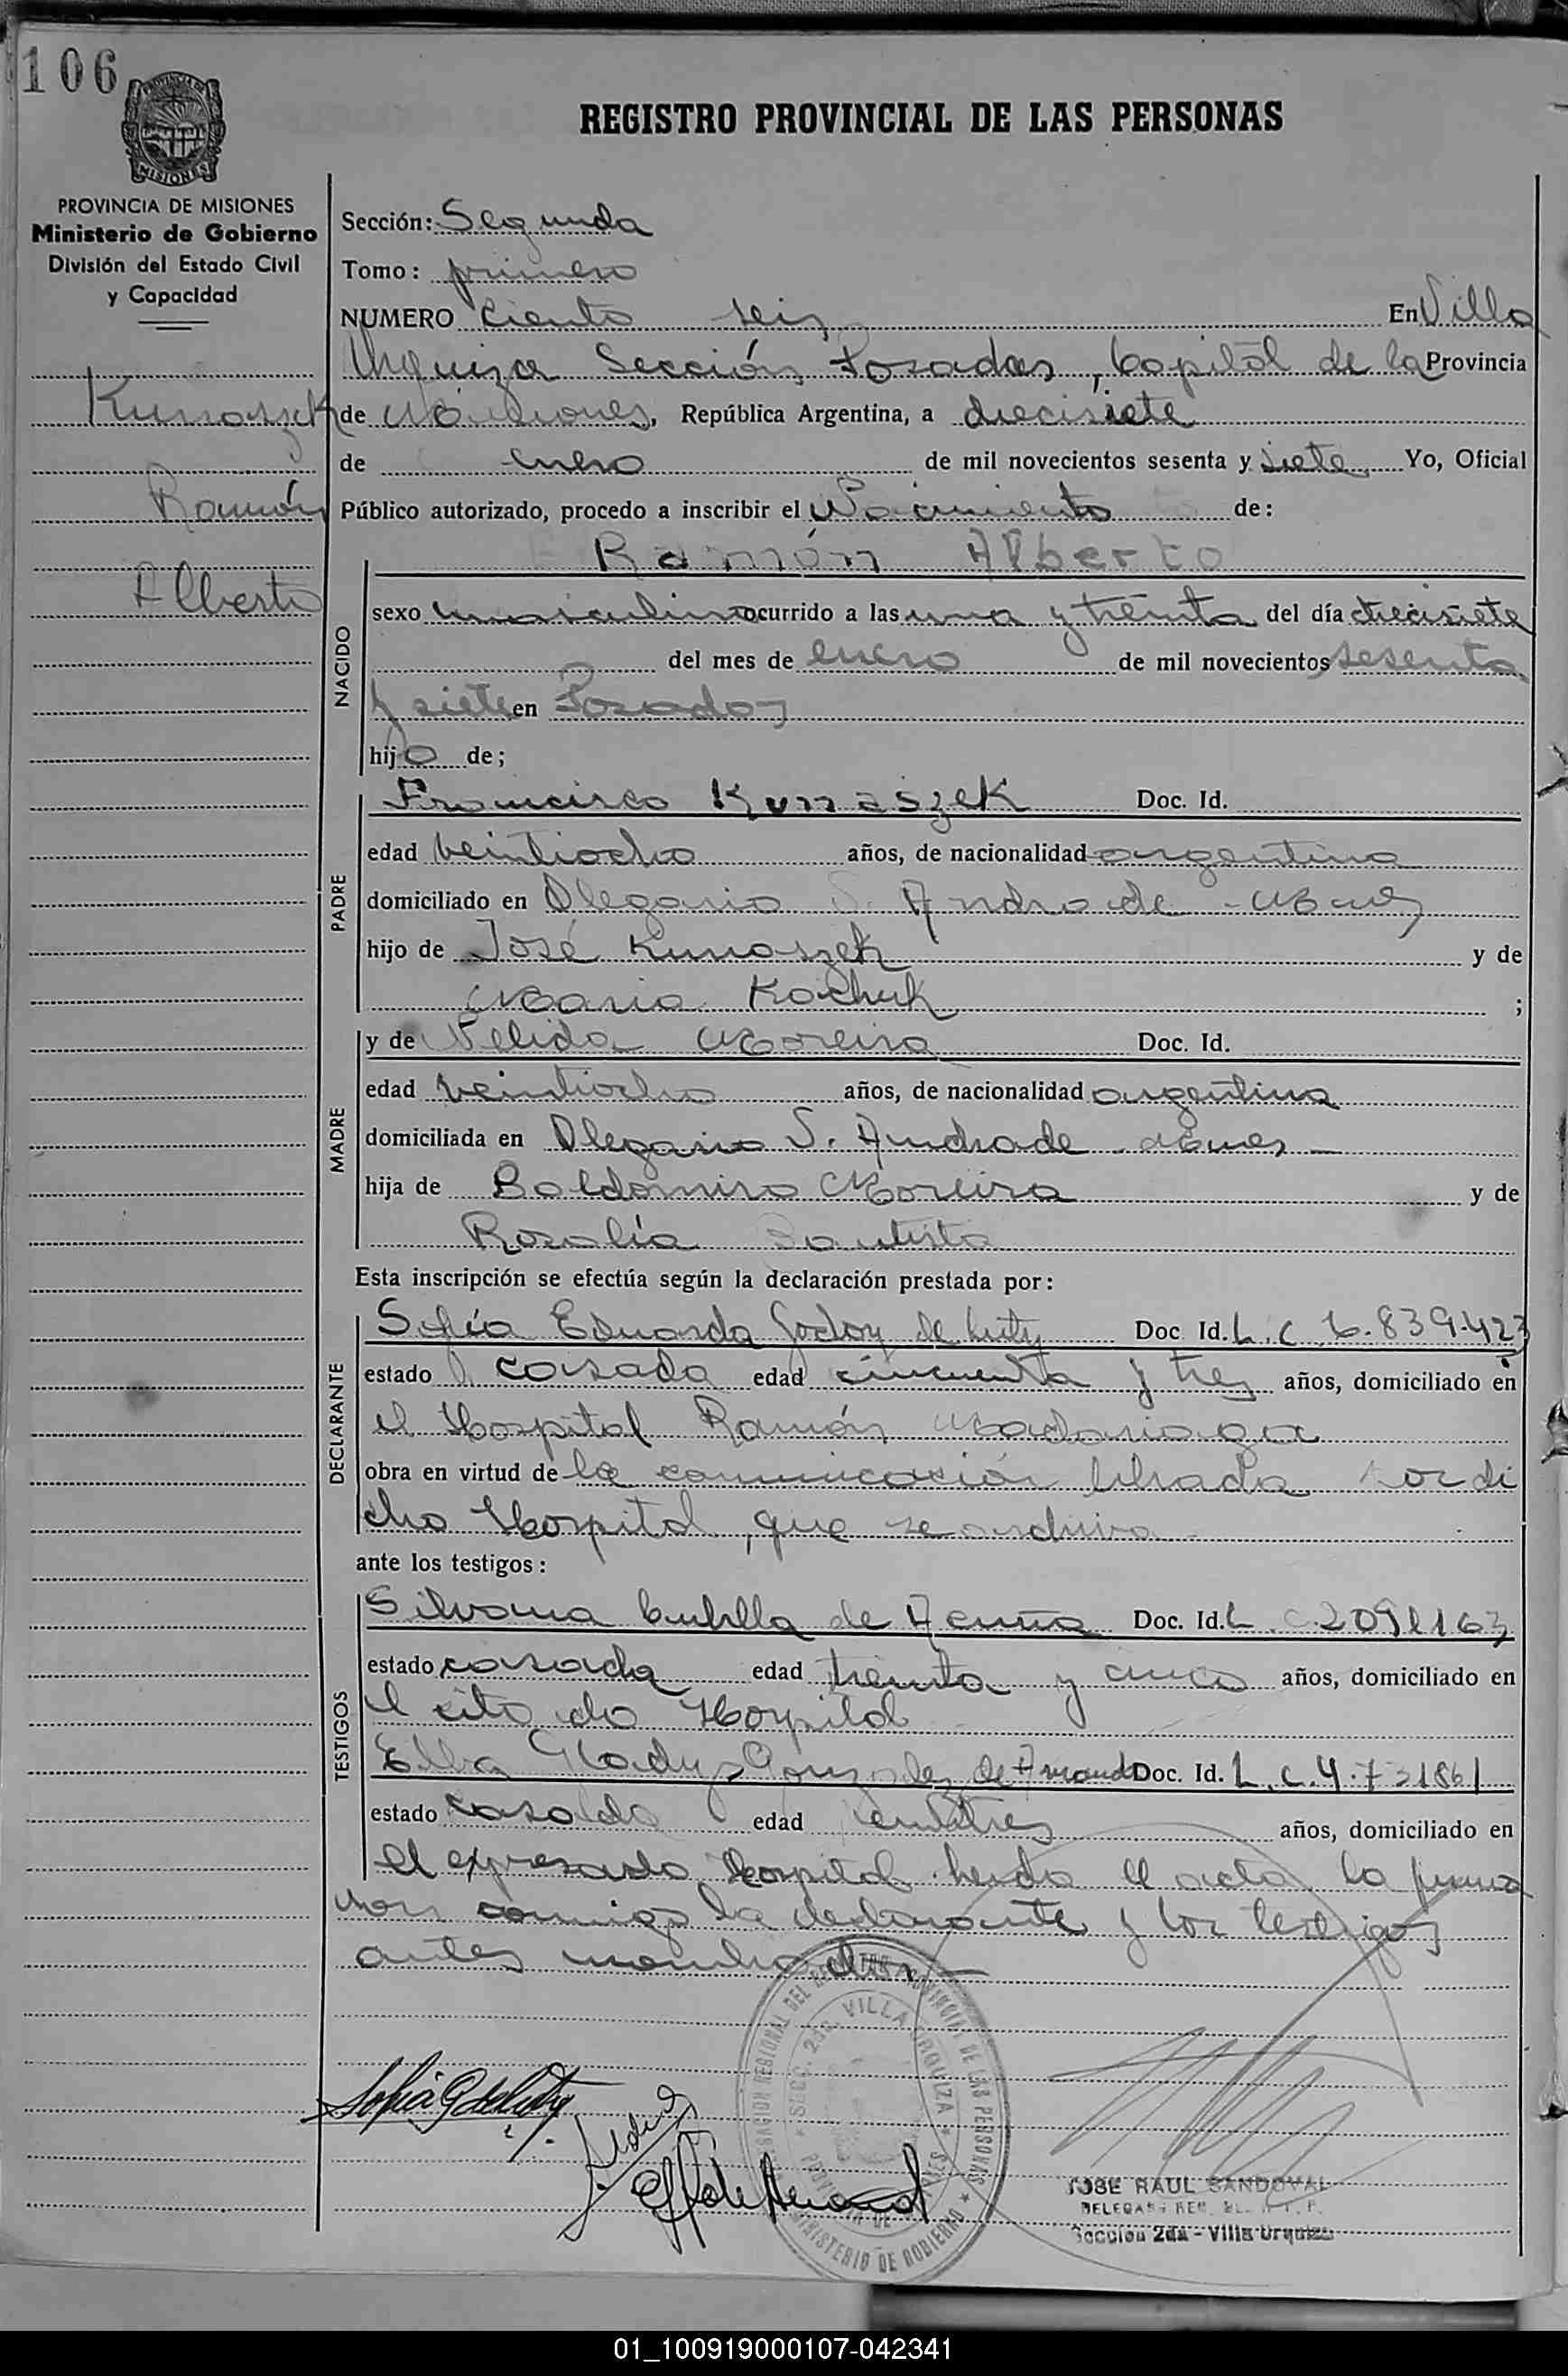 106
REGISTRO PROVINCIAL DE LAS PERSONAS
MISIONES
PROVINCIA DE MISIONES
Ministerio de Gobierno
División del Estado Civil
y Capacidad
Kunaszek
Ramón
Alberto
Sección: Segunda
Tomo: primero
NUMERO Ciento seis En Villa
Urquiza Sección Posadas, Capital de la Provincia
de Misiones, República Argentina, a diecisiete
de enero de mil novecientos sesenta y siete Yo, Oficial
Público autorizado, procedo a inscribir el Nacimiento de:
Ramón Alberto
NACIDO
sexo masculino ocurrido a las una y treinta del día diecisiete
del mes de enero de mil novecientos sesenta
y siete en Posadas
hijo de;
PADRE
Francisco Kunaszek Doc. Id.
edad veintiocho años, de nacionalidad argentina
domiciliado en Olegario S. Andrade - Mnes
hijo de José Kunaszek y de
Maria Kochuk ;
MADRE
y de Nelida Moreira Doc. Id.
edad veintiocho años, de nacionalidad argentina
domiciliada en Olegario S. Andrade - Mnes
hija de Baldomiro Moreira y de
Rosalía Bautista
Esta inscripción se efectúa según la declaración prestada por:
DECLARANTE
Sofía Eduarda Godoy de Doc. Id. L. C 6.839.423
estado casada edad cincuenta y tres años, domiciliado en
el Hospital Ramón Madariaga
obra en virtud de la comunicación librada por di
cho Hospital, que se archiva
ante los testigos:
TESTIGOS
Silvana de Acuña Doc. Id. L. C. 2091163
estado casada edad treinta y cinco años, domiciliado en
el cita do Hospital
Elba Gladys Gonzalez de Doc. Id. L. C. 4.721861
estado casada edad veintitres años, domiciliado en
el expresado Hospital leida el acta la firma
ron conmigo la declarante y los testigos
antes mencionados
DELEGACION REGIONAL DEL REGISTRO PROVINCIAL DE LAS PERSONAS
SECC. 2da. VILLA URQUIZA
PROVINCIA DE MISIONES
MINISTERIO DE GOBIERNO
JOSE RAUL SANDOVAL
Sección 2da - Villa Urquiza
01_100919000107-042341